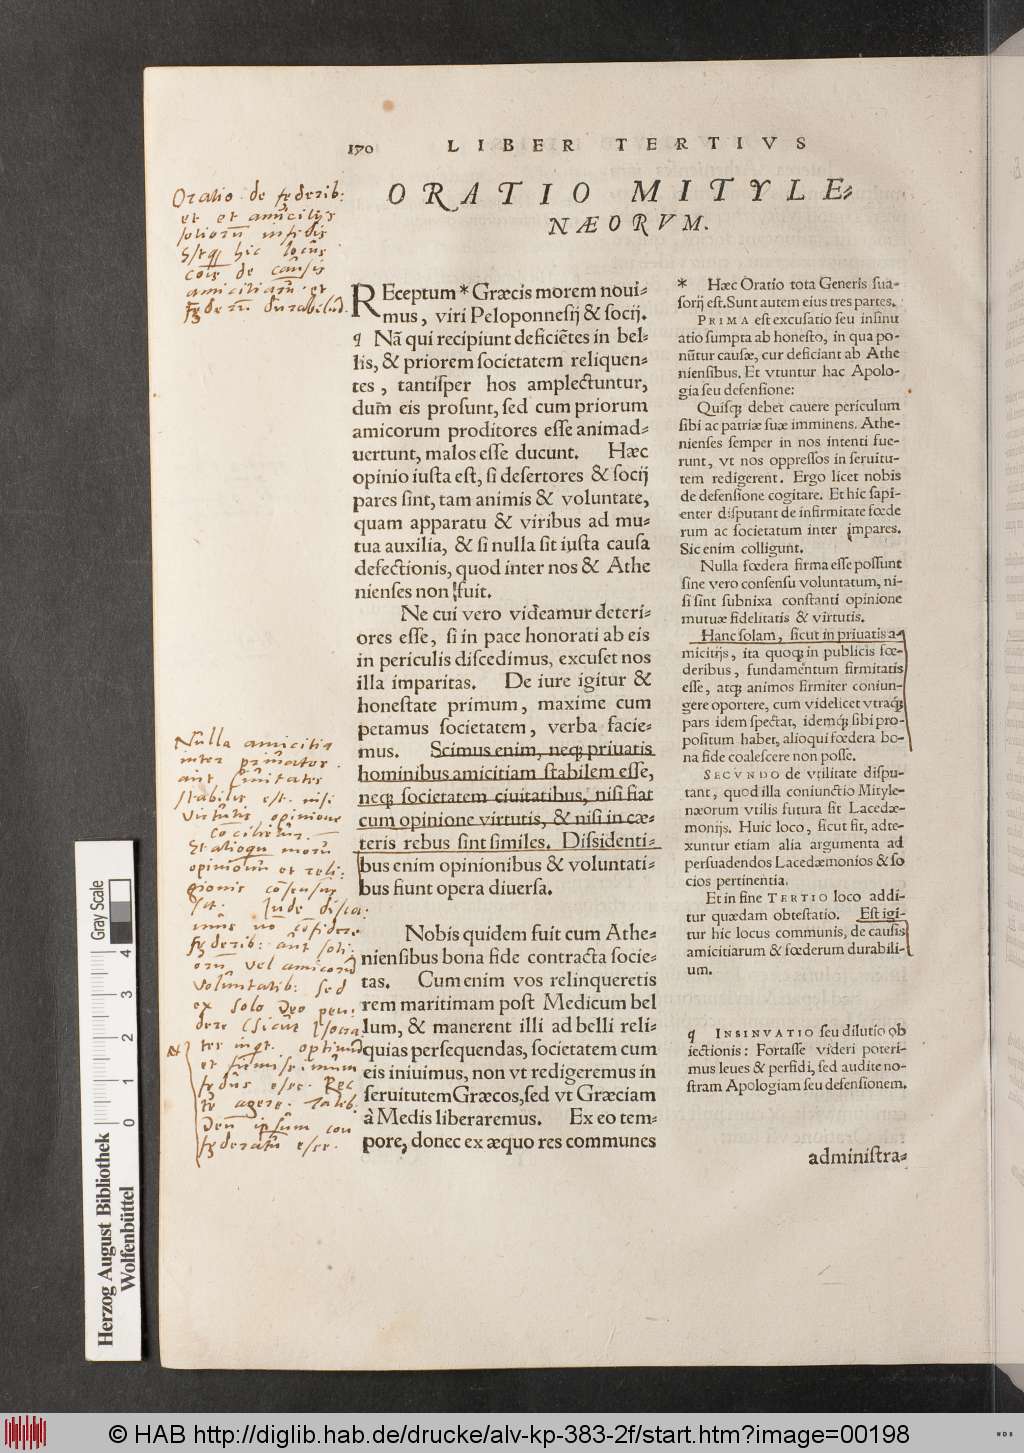 170 LIBER TERTIVS
ORATIO MITYLE⸗
NÆORVM.
Oratio de fęderib:
et amicitijs
sotiorū infidis
Estq̨ hic locus
cōis de causis
amicitiarū et
fęderū durabiliū.
REceptum * Græcis morem noui⸗
mus, viri Peloponneſij & ſocij.
q Nā qui recipiunt deficiētes in bel⸗
lis, & priorem ſocietatem reliquen⸗
tes , tantiſper hos amplectuntur,
dum eis proſunt, ſed cum priorum
amicorum proditores eſſe animad⸗
uertunt, malos eſſe ducunt. Hæc
opinio iuſta eſt, ſi deſertores & ſocij
pares ſint, tam animis & voluntate,
quam apparatu & viribus ad mu⸗
tua auxilia, & ſi nulla ſit iuſta cauſa
defectionis, quod inter nos & Athe
nienſes non fuit.
Ne cui vero videamur deteri⸗
ores eſſe, ſi in pace honorati ab eis
in periculis diſcedimus, excuſet nos
illa imparitas. De iure igitur &
honeſtate primum, maxime cum
petamus ſocietatem, verba facie⸗
mus. Scimus enim, neq; priuatis
hominibus amicitiam ſtabilem eſſe,
neq; ſocietatem ciuitatibus, niſi fiat
cum opinione virtutis, & niſi in cæ⸗
teris rebus ſint ſimiles. Diſsidenti⸗
bus enim opinionibus & voluntati⸗
bus fiunt opera diuerſa.
Nobis quidem fuit cum Athe⸗
nienſibus bona fide contracta ſocie⸗
tas. Cum enim vos relinqueretis
rem maritimam poſt Medicum bel
lum, & manerent illi ad belli reli⸗
quias perſequendas, ſocietatem cum
eis iniuimus, non vt redigeremus in
ſeruitutem Græcos, ſed vt Græciam
à Medis liberaremus. Ex eo tem⸗
pore, donec ex æquo res communes
* Hæc Oratio tota Generis ſua-
ſorij eſt. Sunt autem eius tres partes.
PRIMA eſt excuſatio ſeu inſinu
atio ſumpta ab honeſto, in qua po-
nūtur cauſæ, cur deficiant ab Athe
nienſibus. Et vtuntur hac Apolo-
gia ſeu defenſione:
Quiſq; debet cauere periculum
ſibi ac patriæ ſuæ imminens. Athe-
nienſes ſemper in nos intenti fue-
runt, vt nos oppreſſos in ſeruitu-
tem redigerent. Ergo licet nobis
de defenſione cogitare. Et hic ſapi-
enter diſputant de infirmitate fœde
rum ac ſocietatum inter impares.
Sic enim colligunt.
Nulla fœdera firma eſſe poſſunt
ſine vero conſenſu voluntatum, ni-
ſi ſint ſubnixa conſtanti opinione
mutuæ fidelitatis & virtutis.
Hanc ſolam, ſicut in priuatis a-
micitijs, ita quoq; in publicis fœ-
deribus, fundamentum firmitatis
eſſe, atq; animos firmiter coniun-
gere oportere, cum videlicet vtraq;
pars idem ſpectat, idemq; ſibi pro-
poſitum habet, alioqui fœdera bo-
na fide coaleſcere non poſſe.
SECVNDO de vtilitate diſpu-
tant, quod illa coniunctio Mityle-
næorum vtilis futura ſit Lacedæ-
monijs. Huic loco, ſicut fit, adte-
xuntur etiam alia argumenta ad
perſuadendos Lacedæmonios & ſo
cios pertinentia.
Et in fine TERTIO loco addi-
tur quædam obteſtatio. Eſt igi-
tur hic locus communis, de cauſis
amicitiarum & fœderum durabili-
um.
q INSINVATIO ſeu dilutio ob
iectionis: Fortaſſe videri poteri-
mus leues & perfidi, ſed audite no-
ſtram Apologiam ſeu defenſionem.
adminiſtra⸗
Nulla amicitia
inter privatos
aut civitates
stabilis est. nisi
virtutis opinione
Et alioqui morū
opinionū et reli:
gionis cōsensus
sit. Inde disca:
mus nō cōfidere
fęderib: aut soti:
orū vel amicorū
voluntatib: sed
ex solo Deo pen:
dere (sicut Isocra
tes inqt. optimū
et firmissimum
fędus esse. Rec
te agere. talib.
Deū ipsum con
fęderatū esse.
Gray Scale
0 1 2 3 4
Herzog August Bibliothek
Wolfenbüttel
© HAB http://diglib.hab.de/drucke/alv-kp-383-2f/start.htm?image=00198